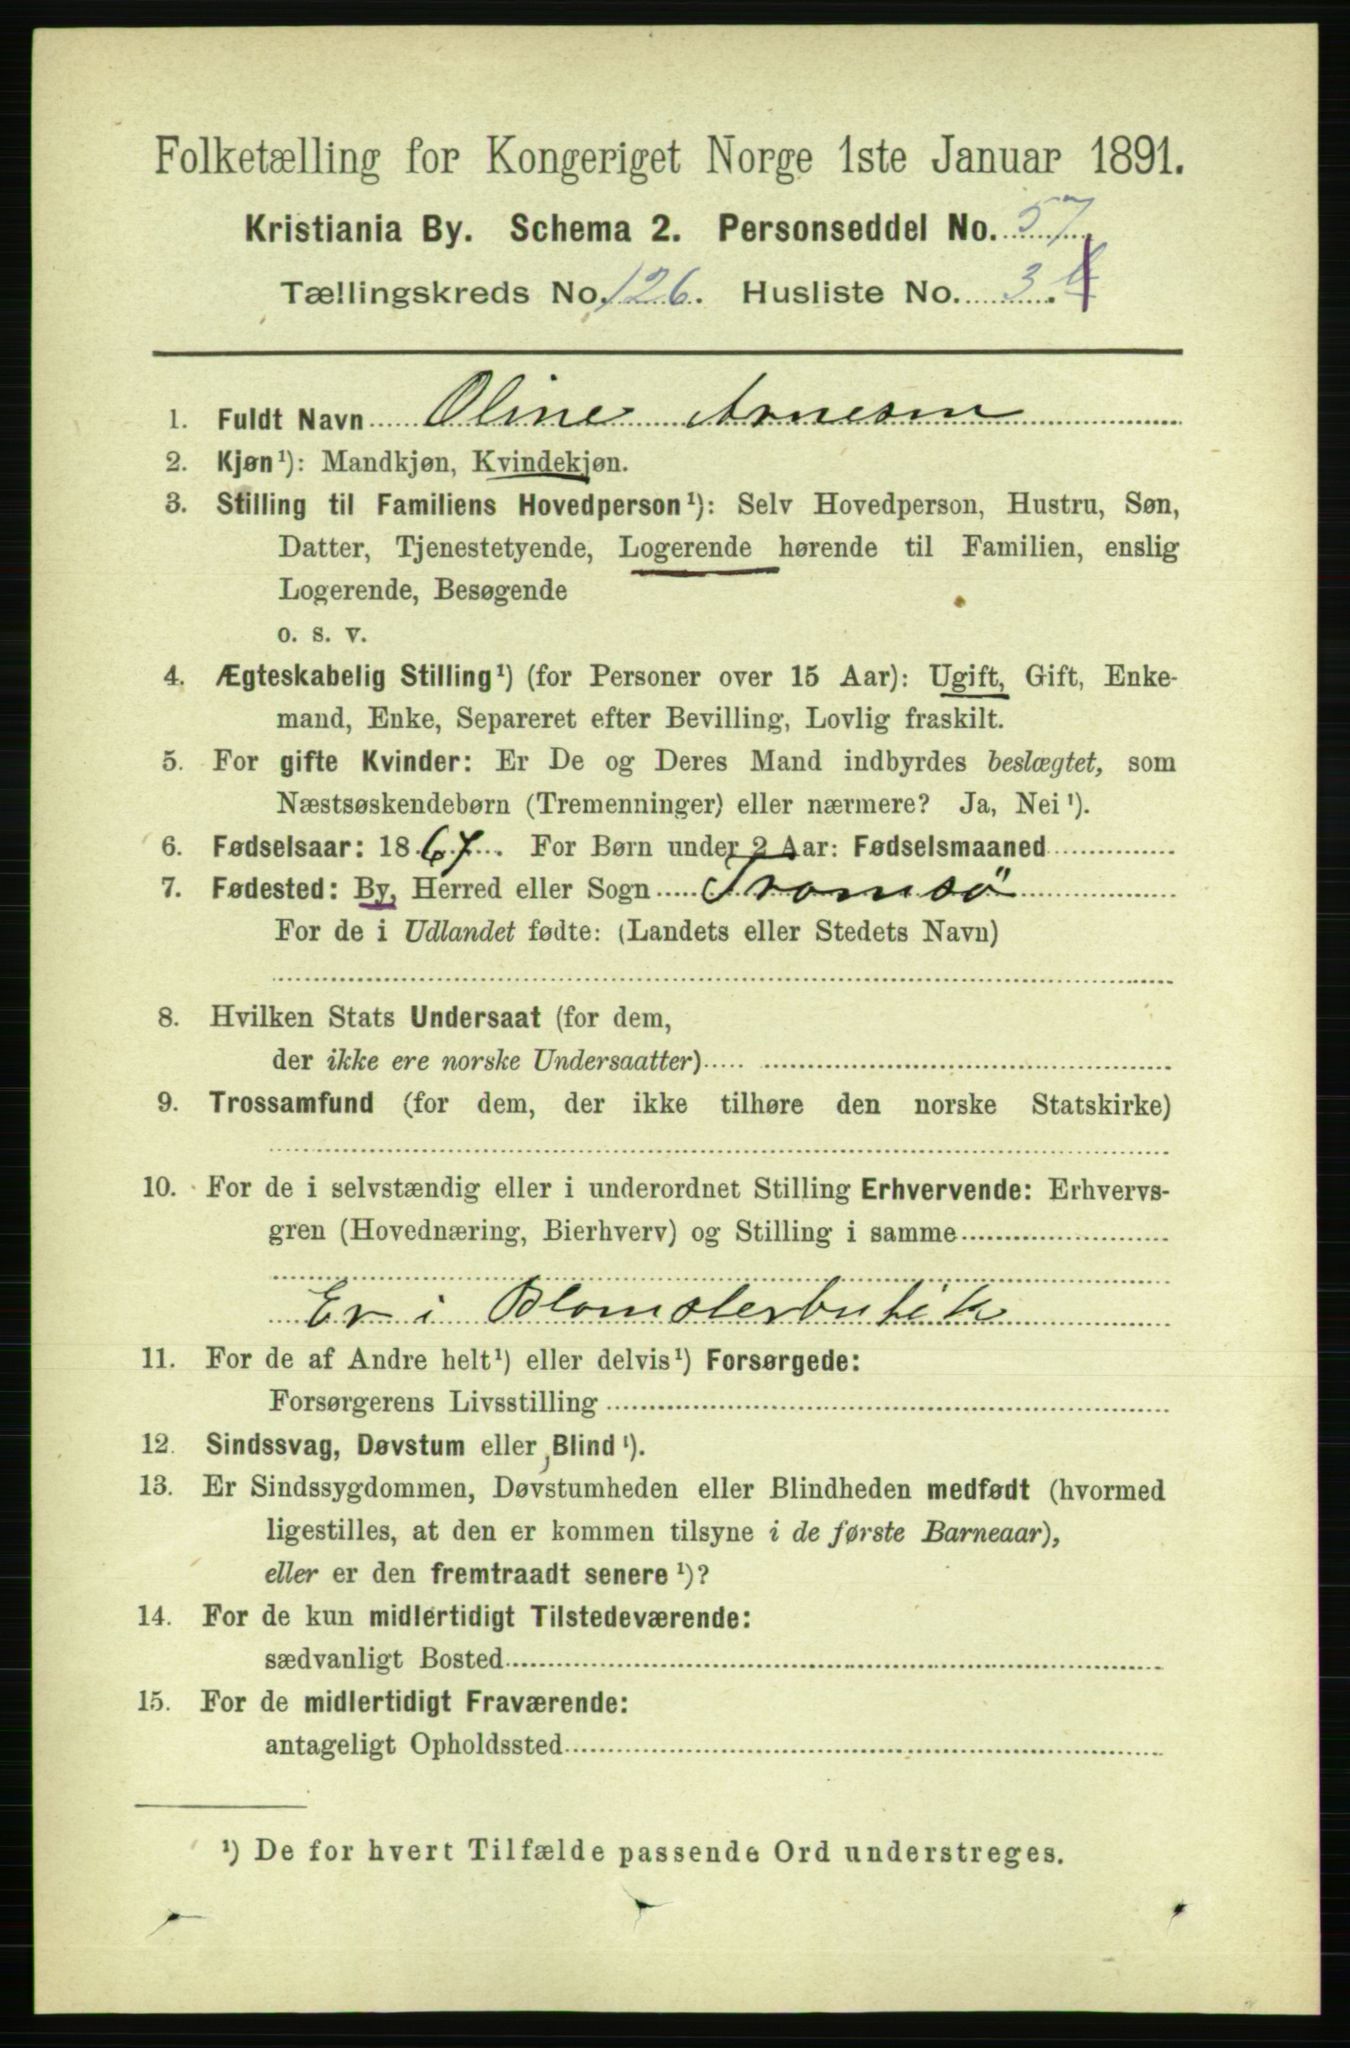 Folketælling for Kongeriget Norge 1ste Januar 1891.
Kristiania By. Schema 2. Personseddel No. 57
Tællingskreds No. 126. Husliste No. 3.
1. Fuldt Navn Oline Arnesen
2. Kjøn¹): Mandkjøn, Kvindekjøn.
3. Stilling til Familiens Hovedperson¹): Selv Hovedperson, Hustru, Søn,
Datter, Tjenestetyende, Logerende hørende til Familien, enslig
Logerende, Besøgende
o. s. v.
4. Ægteskabelig Stilling¹) (for Personer over 15 Aar): Ugift, Gift, Enke-
mand, Enke, Separeret efter Bevilling, Lovlig fraskilt.
5. For gifte Kvinder: Er De og Deres Mand indbyrdes beslægtet, som
Næstsøskendebørn (Tremenninger) eller nærmere? Ja, Nei¹).
6. Fødselsaar: 1867. For Børn under 2 Aar: Fødselsmaaned
7. Fødested: By, Herred eller Sogn Tromsö
For de i Udlandet fødte: (Landets eller Stedets Navn)
8. Hvilken Stats Undersaat (for dem,
der ikke ere norske Undersaatter)
9. Trossamfund (for dem, der ikke tilhøre den norske Statskirke)
10. For de i selvstændig eller i underordnet Stilling Erhvervende: Erhvervs-
gren (Hovednæring, Bierhverv) og Stilling i samme
Er i Blomsterbutik
11. For de af Andre helt¹) eller delvis¹) Forsørgede:
Forsørgerens Livsstilling
12. Sindssvag, Døvstum eller Blind¹).
13. Er Sindssygdommen, Døvstumheden eller Blindheden medfødt (hvormed
ligestilles, at den er kommen tilsyne i de første Barneaar),
eller er den fremtraadt senere¹)?
14. For de kun midlertidigt Tilstedeværende:
sædvanligt Bosted
15. For de midlertidigt Fraværende:
antageligt Opholdssted
¹) De for hvert Tilfælde passende Ord understreges.